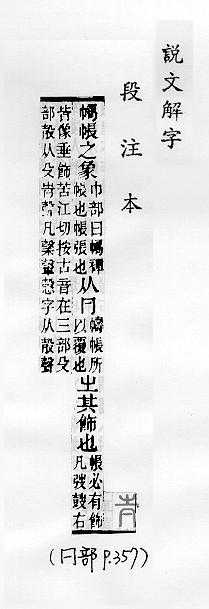 説文解字
段注本
幬帳之象
巾部曰幬襌
帳也帳張也
从𠔼
幬帳所
以覆也
㞢其飾也
帳必有飾
凡弢鼓右
皆像垂飾苦江切按古音在三部殳
部㱿从殳 聲凡 字从㱿聲
(𠔼部 p.357)